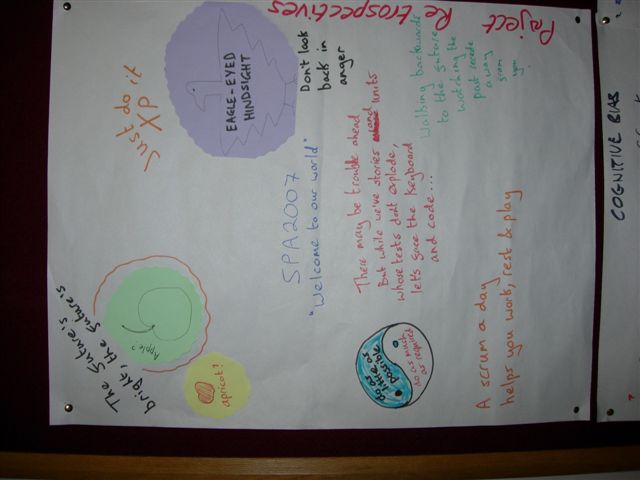 Reject Retrospectives
Walking backwards
to the future
watching the
past recede
away
from
you
Don't look
back in
anger
EAGLE-EYED
HINDSIGHT
Just do it
XP
There may be trouble ahead
But while we've stories and units
whose tests don't explode,
lets face the keyboard
and code...
SPA2007
"Welcome to our world"
A scrum a day
helps you work, rest & play
do as
little as
possible
do as much
as required
The future's
bright, the future's
Apple?
apricot!
COGNITIVE BIAS